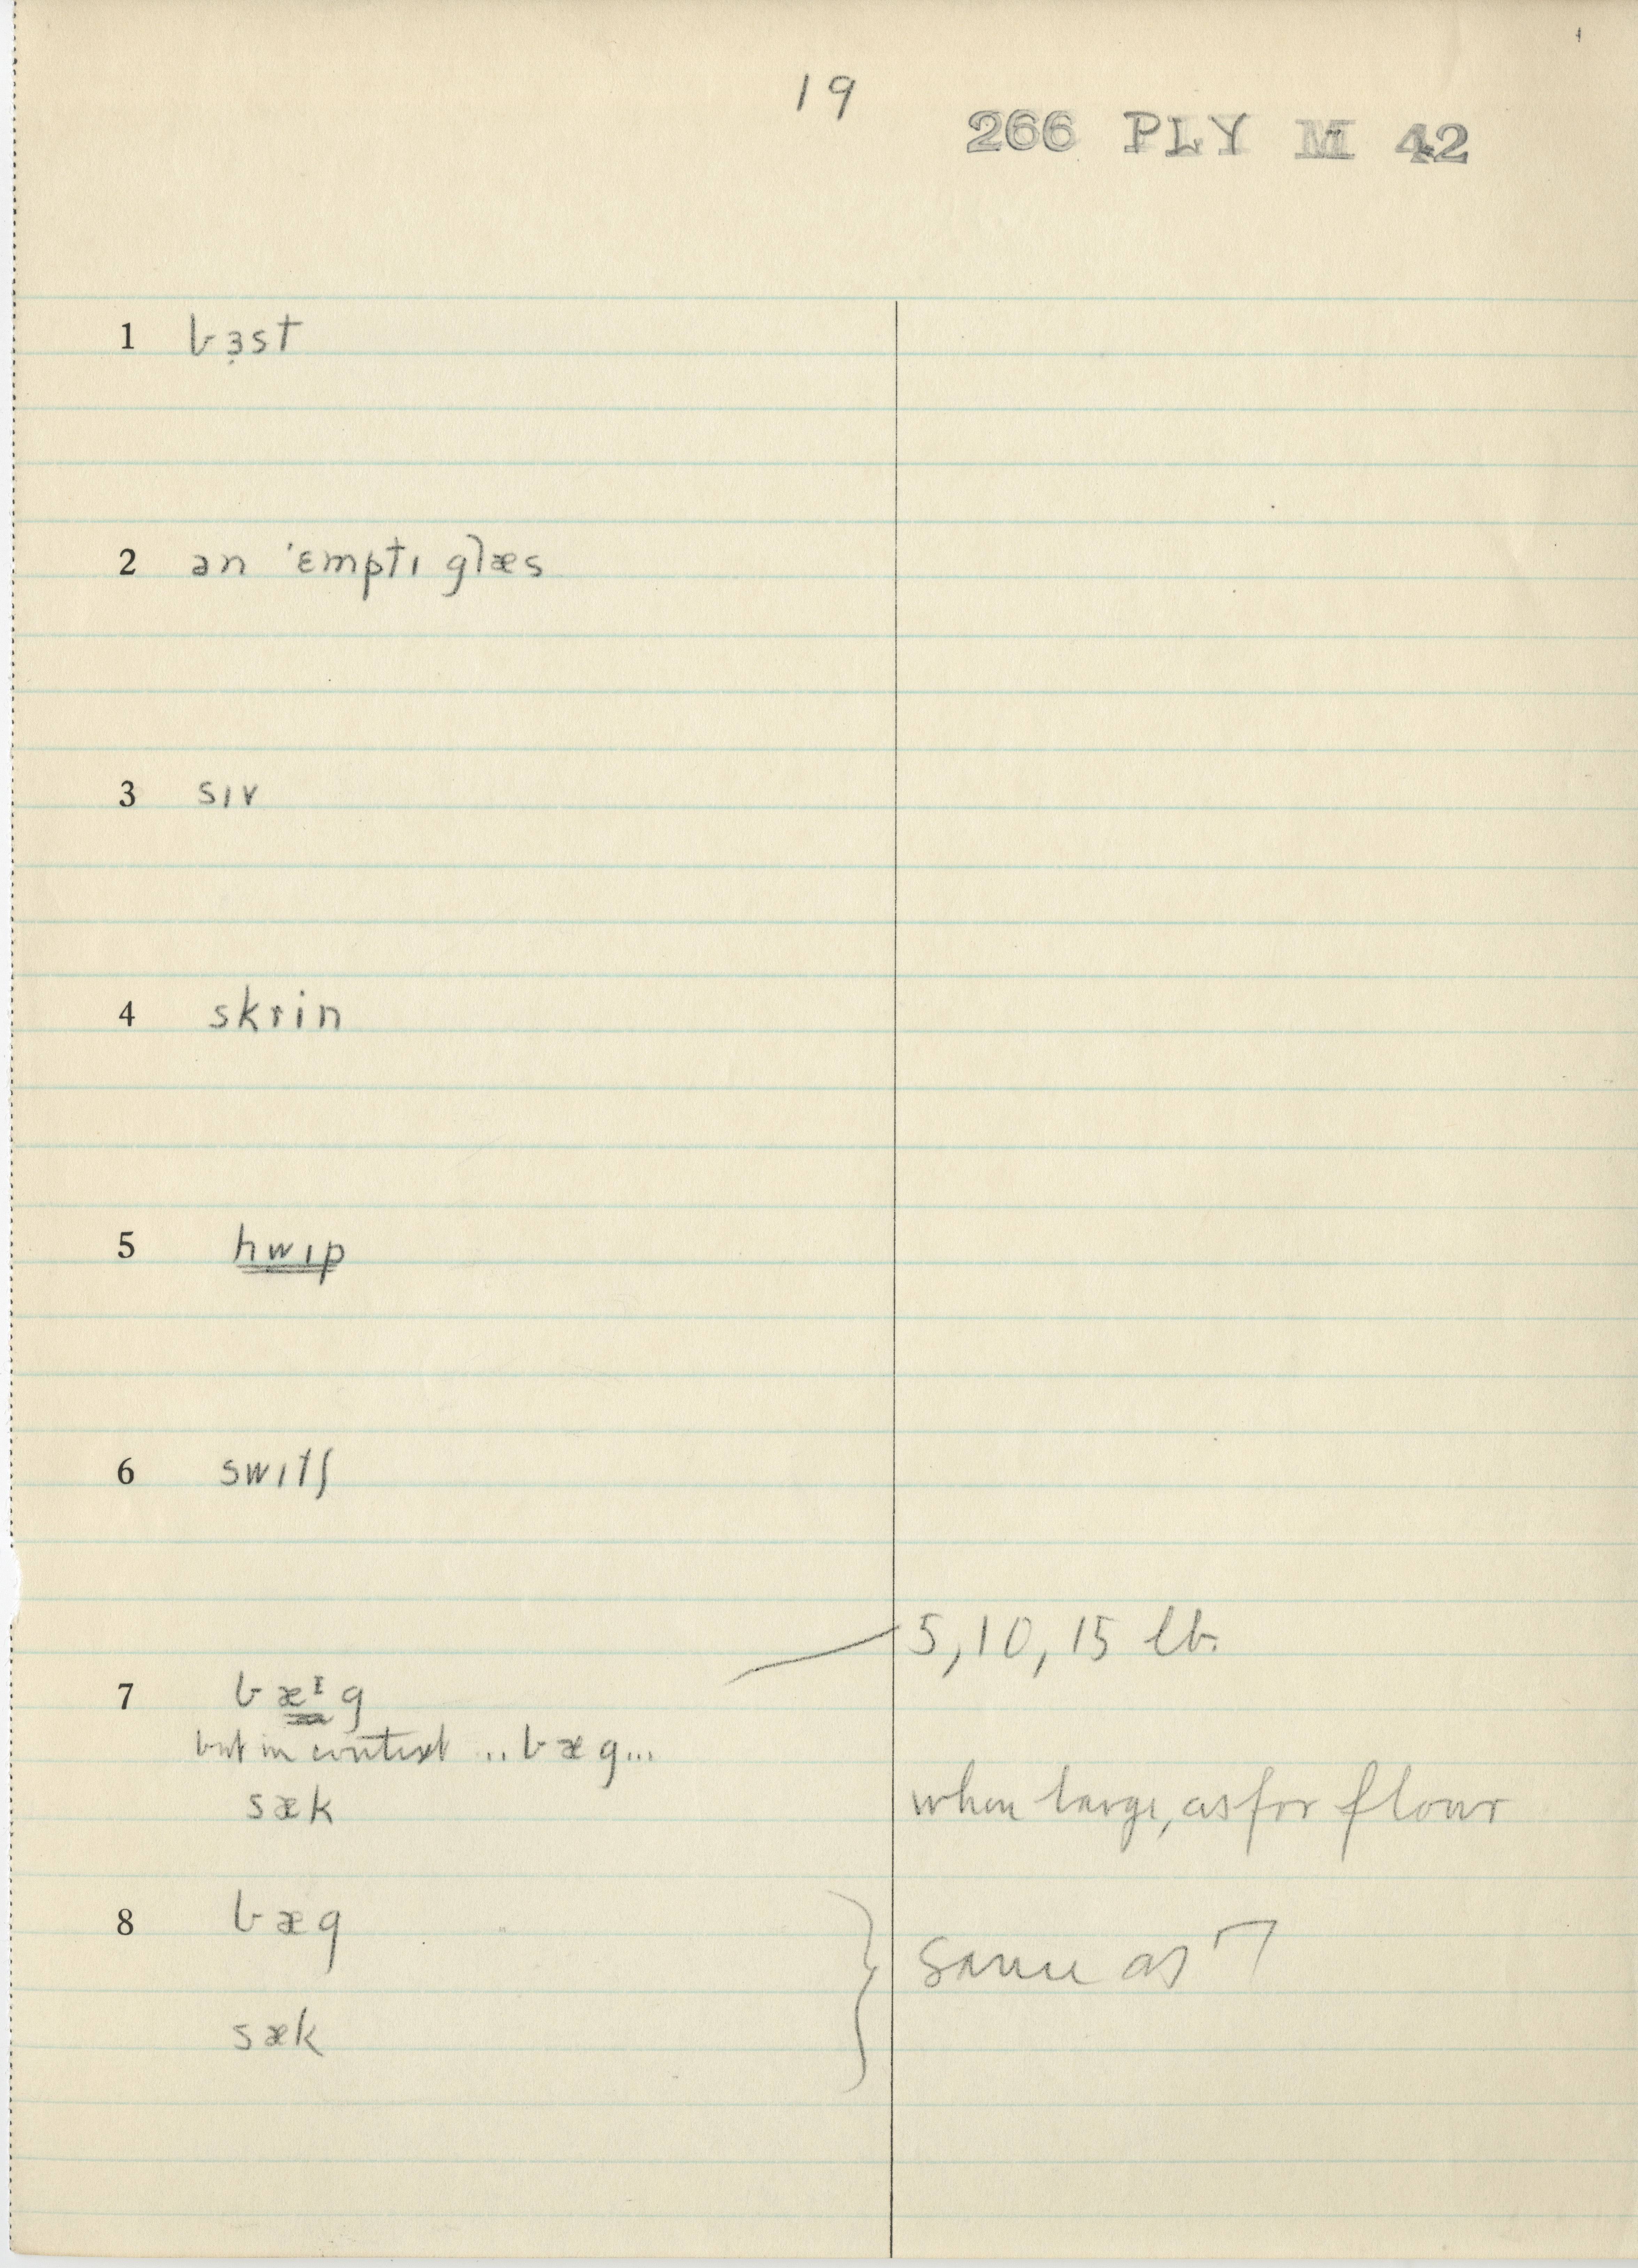 19
266 PLY M 42
1 bɜ̣st
2 ən ˈɛmptɪ glæs
3 sɪv
4 skrin
5 hwɪp
6 swɪtʃ
5, 10, 15 lb.
7 bæᶦg
but in context ...bæg...
sæk when large, as for flour
8 bæg
same as 7
sæk